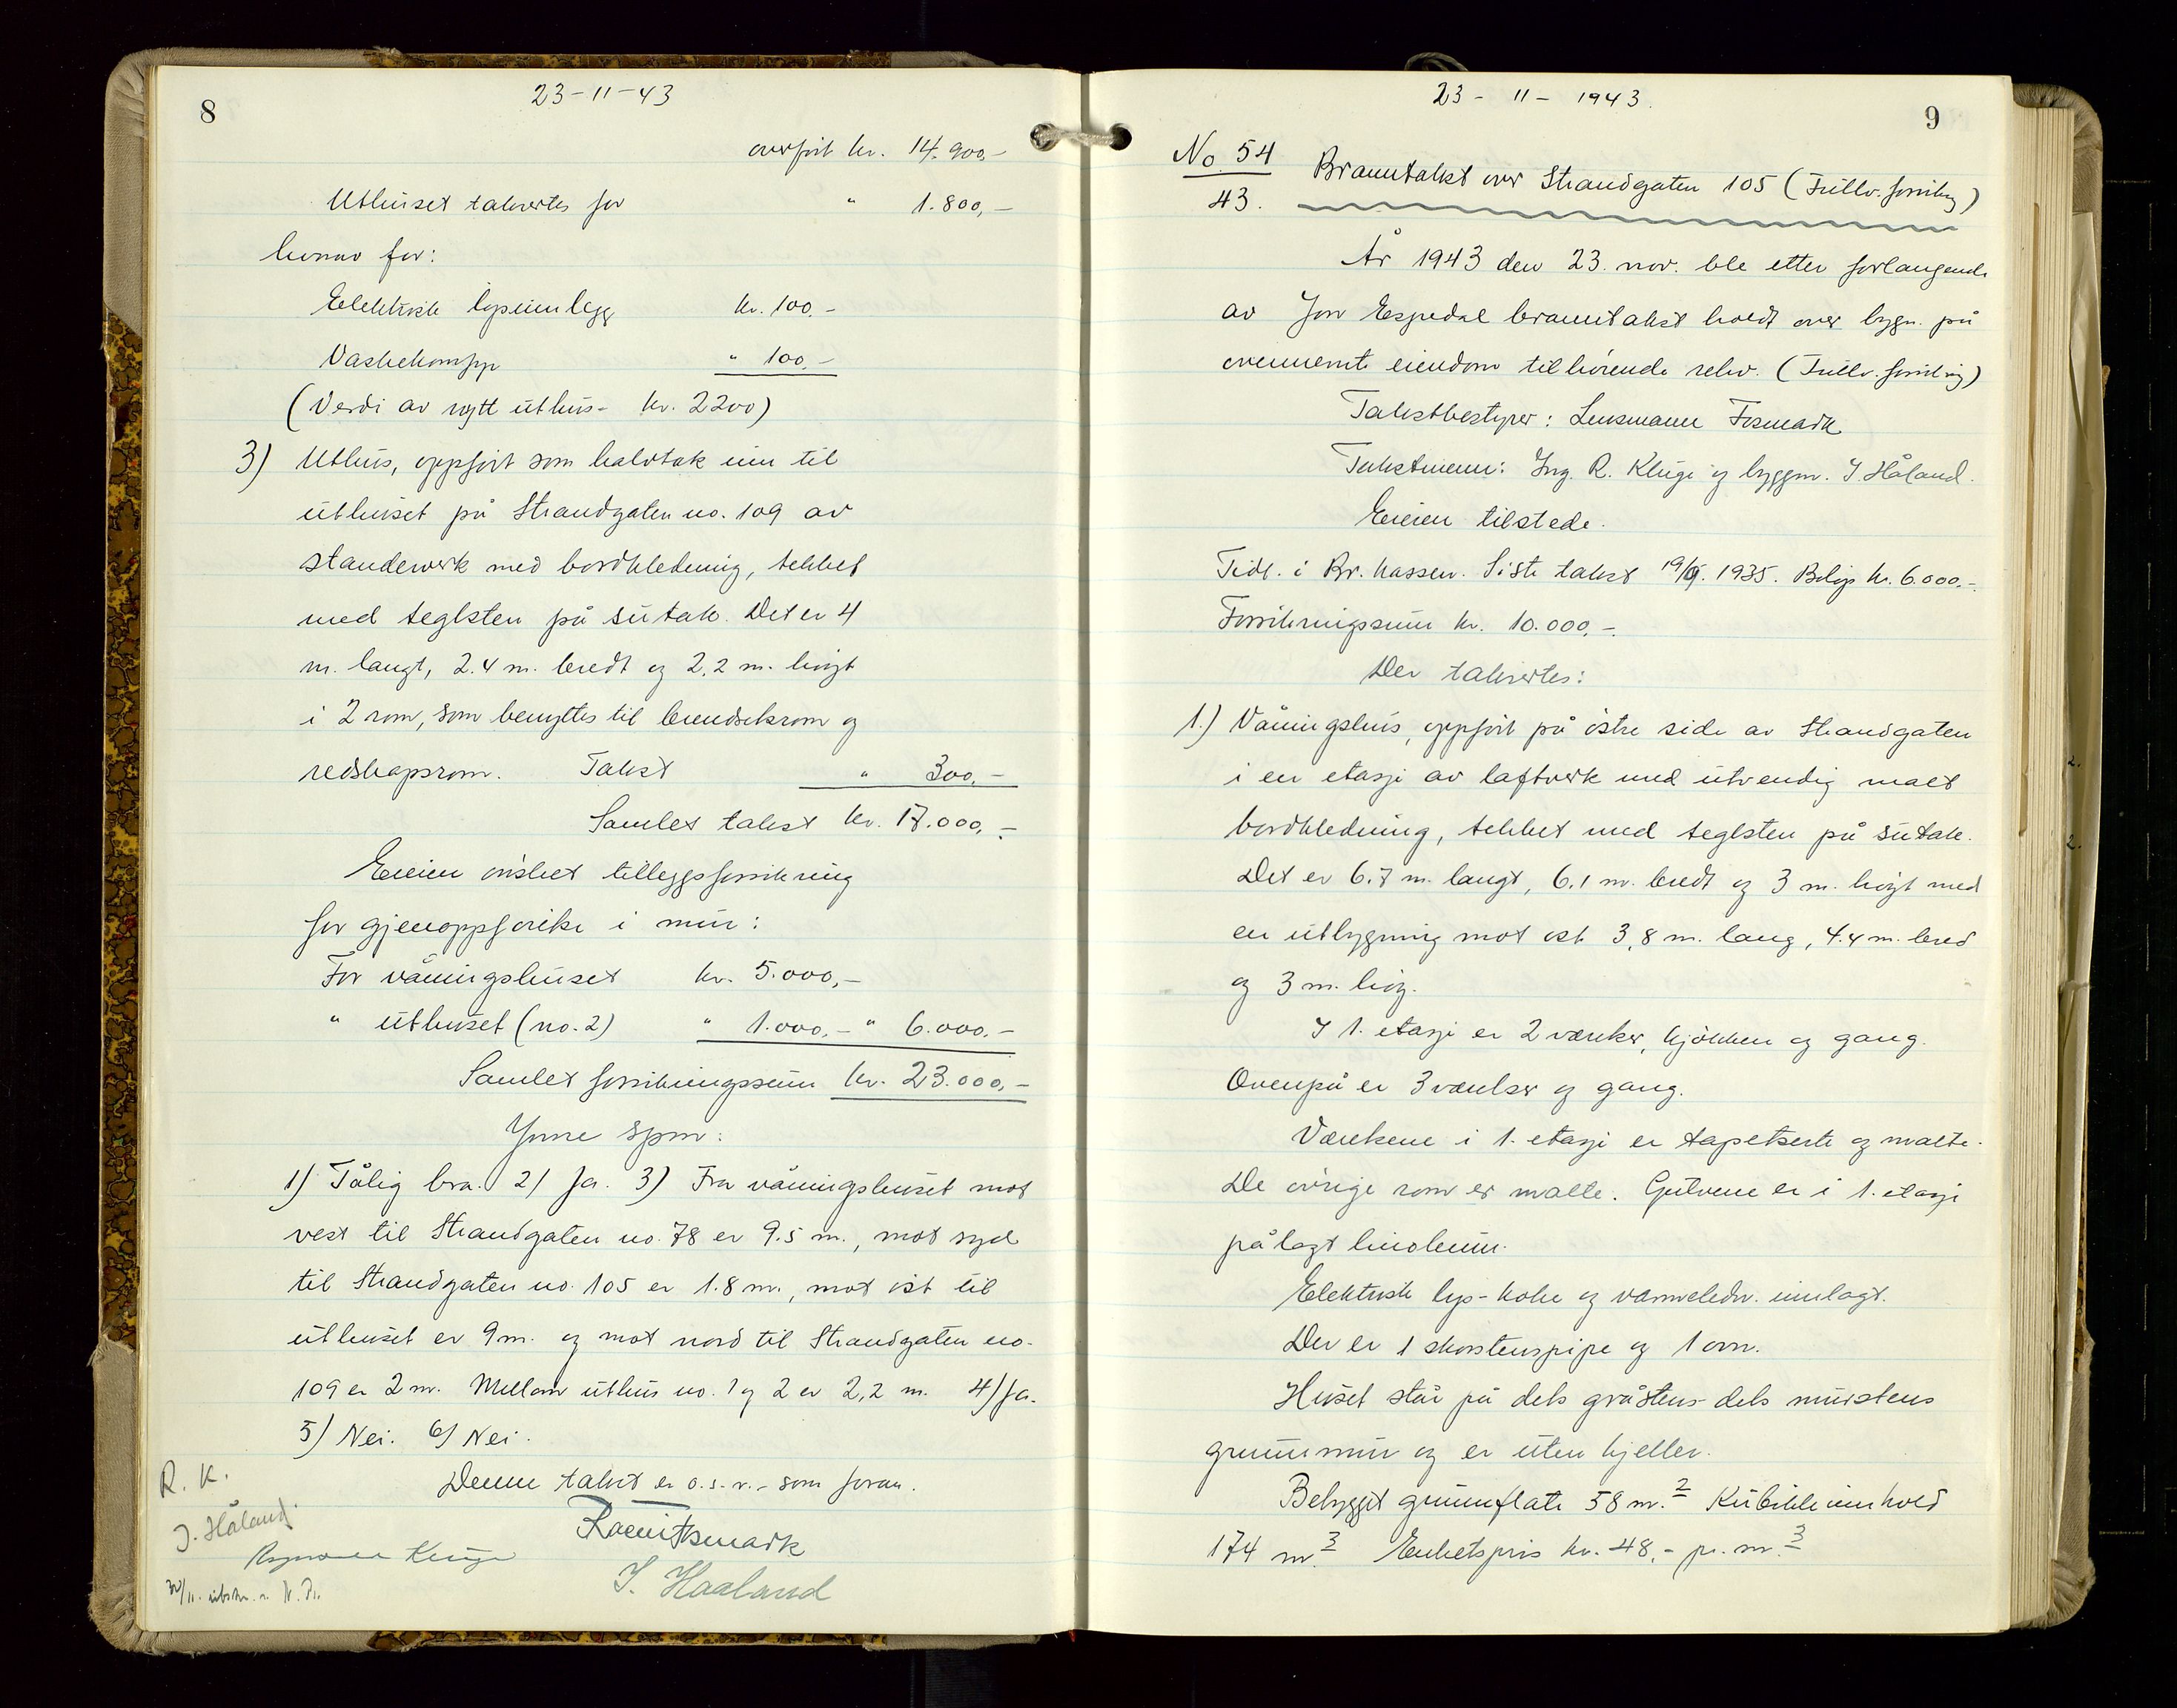 8
23-11-43
overført kr. 14.900,-
Uthuset taksertes for " 1.800,-
hvorav for:
Elektrisk lysinnlegg kr. 100,-
Vaskekomfyr " 100,-
(Verdi av nytt uthus - kr. 2200)
3) Uthus, oppført som halvtak inn til
uthuset på Strandgaten no. 109 av
standerverk med bordkledning, tekket
med teglsten på sutak. Det er 4
m. langt, 2.4 m. bredt og 2,2 m. høigt
i 2 rom, som benyttes til brendselsrom og
redskapsrom. Takst " 300,-
Samlet takst kr. 17.000,-
Eieren ønsket tilleggsforsikring
for gjenoppførelse i mur:
For våningshuset kr. 5.000,-
" uthuset (no. 2) " 1.000,- " 6.000,-
Samlet forsikringssum kr. 23.000,-
Ymse spm:
1) Tålig bra. 2) Ja. 3) Fra våningshuset mot
vest til Strandgaten no. 78 er 9.5 m., mot syd
til Strandgaten no. 105 er 1.8 m., mot øst til
uthuset er 9 m. og mot nord til Strandgaten no.
109 er 2 m. Mellom uthus no. 1 og 2 er 2,2 m. 4) Ja.
5) Nei. 6) Nei.
Denne takst er o.s.v. - som foran.
R. K.
J. Håland
J. Haaland
9
23 - 11 - 1943.
No 54
43.
Branntakst over Strandgaten 105 (Fullv. forsikring)
År 1943 den 23. nov. ble etter forlangende
av Jon Espedal branntakst holdt over bygn. på
ovennemte eiendom tilhørende rekv. (Fullv. forsikring)
Takstbestyrer: Lensmann Fosmark
Takstmenn: Ing. R. Kluge og byggm. J. Håland.
Eieren tilstede.
Tidl. i Br. kassen. Siste takst 19/9. 1935. Beløp kr. 6.000,-.
Forsikringssum kr. 10.000,-.
Der takseres:
1.) Våningshus, oppført på østre side av Strandgaten
i en etasje av laftverk med utvendig malt
bordkledning, tekket med teglsten på sutak.
Det er 6.7 m. langt, 6.1 m. bredt og 3 m. høigt med
en utbygning mot øst 3,8 m. lang, 4.4 m. bred
og 3 m. høig.
I 1. etasje er 2 værelser, kjøkken og gang.
Ovenpå er 3 værelser og gang.
Værelsene i 1. etasje er tapetserte og malte.
De øvrige rom er malte. Gulvene er i 1. etasje
pålagt linoleum.
Elektrisk lys- koke og varmeledn. innlagt.
Der er 1 skorstenspipe og 1 ovn.
Huset står på dels gråstens- dels murstens
grunnmur og er uten kjeller.
Bebygget grunnflate 58 m.2 Kubikkinnhold
174 m.3 Enhetspris kr. 48,- pr. m.3